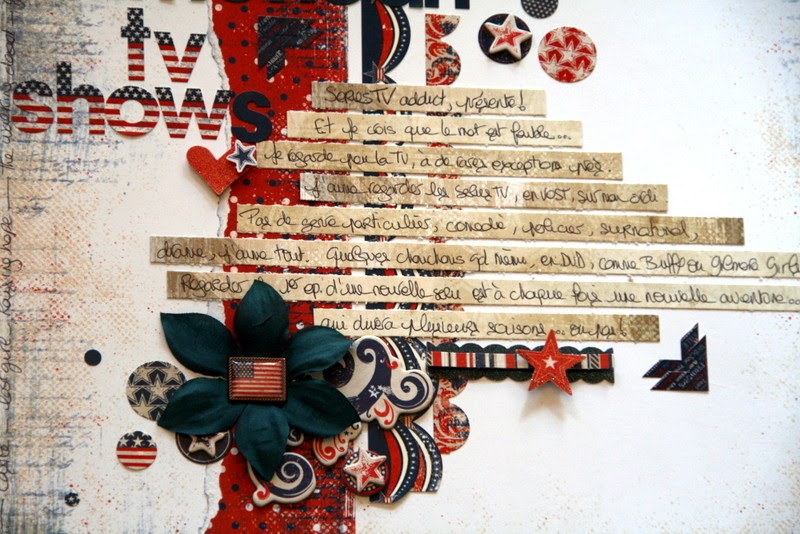 tv
shows
Séries TV addict, présente !
Et je crois que le mot est faible...
Je regarde peu la TV, à de rares exceptions près.
J'aime regarder les séries TV, en VOST, sur mon ordi
Pas de genre particulier, comédie, policier, surnaturel,
drame, j'aime tout. Quelques chouchous qd même, en DVD, comme Buffy ou Gilmore Girls
Regarder le 1er ep. d'une nouvelle série est à chaque fois une nouvelle aventure...
qui durera plusieurs saisons... ou pas !